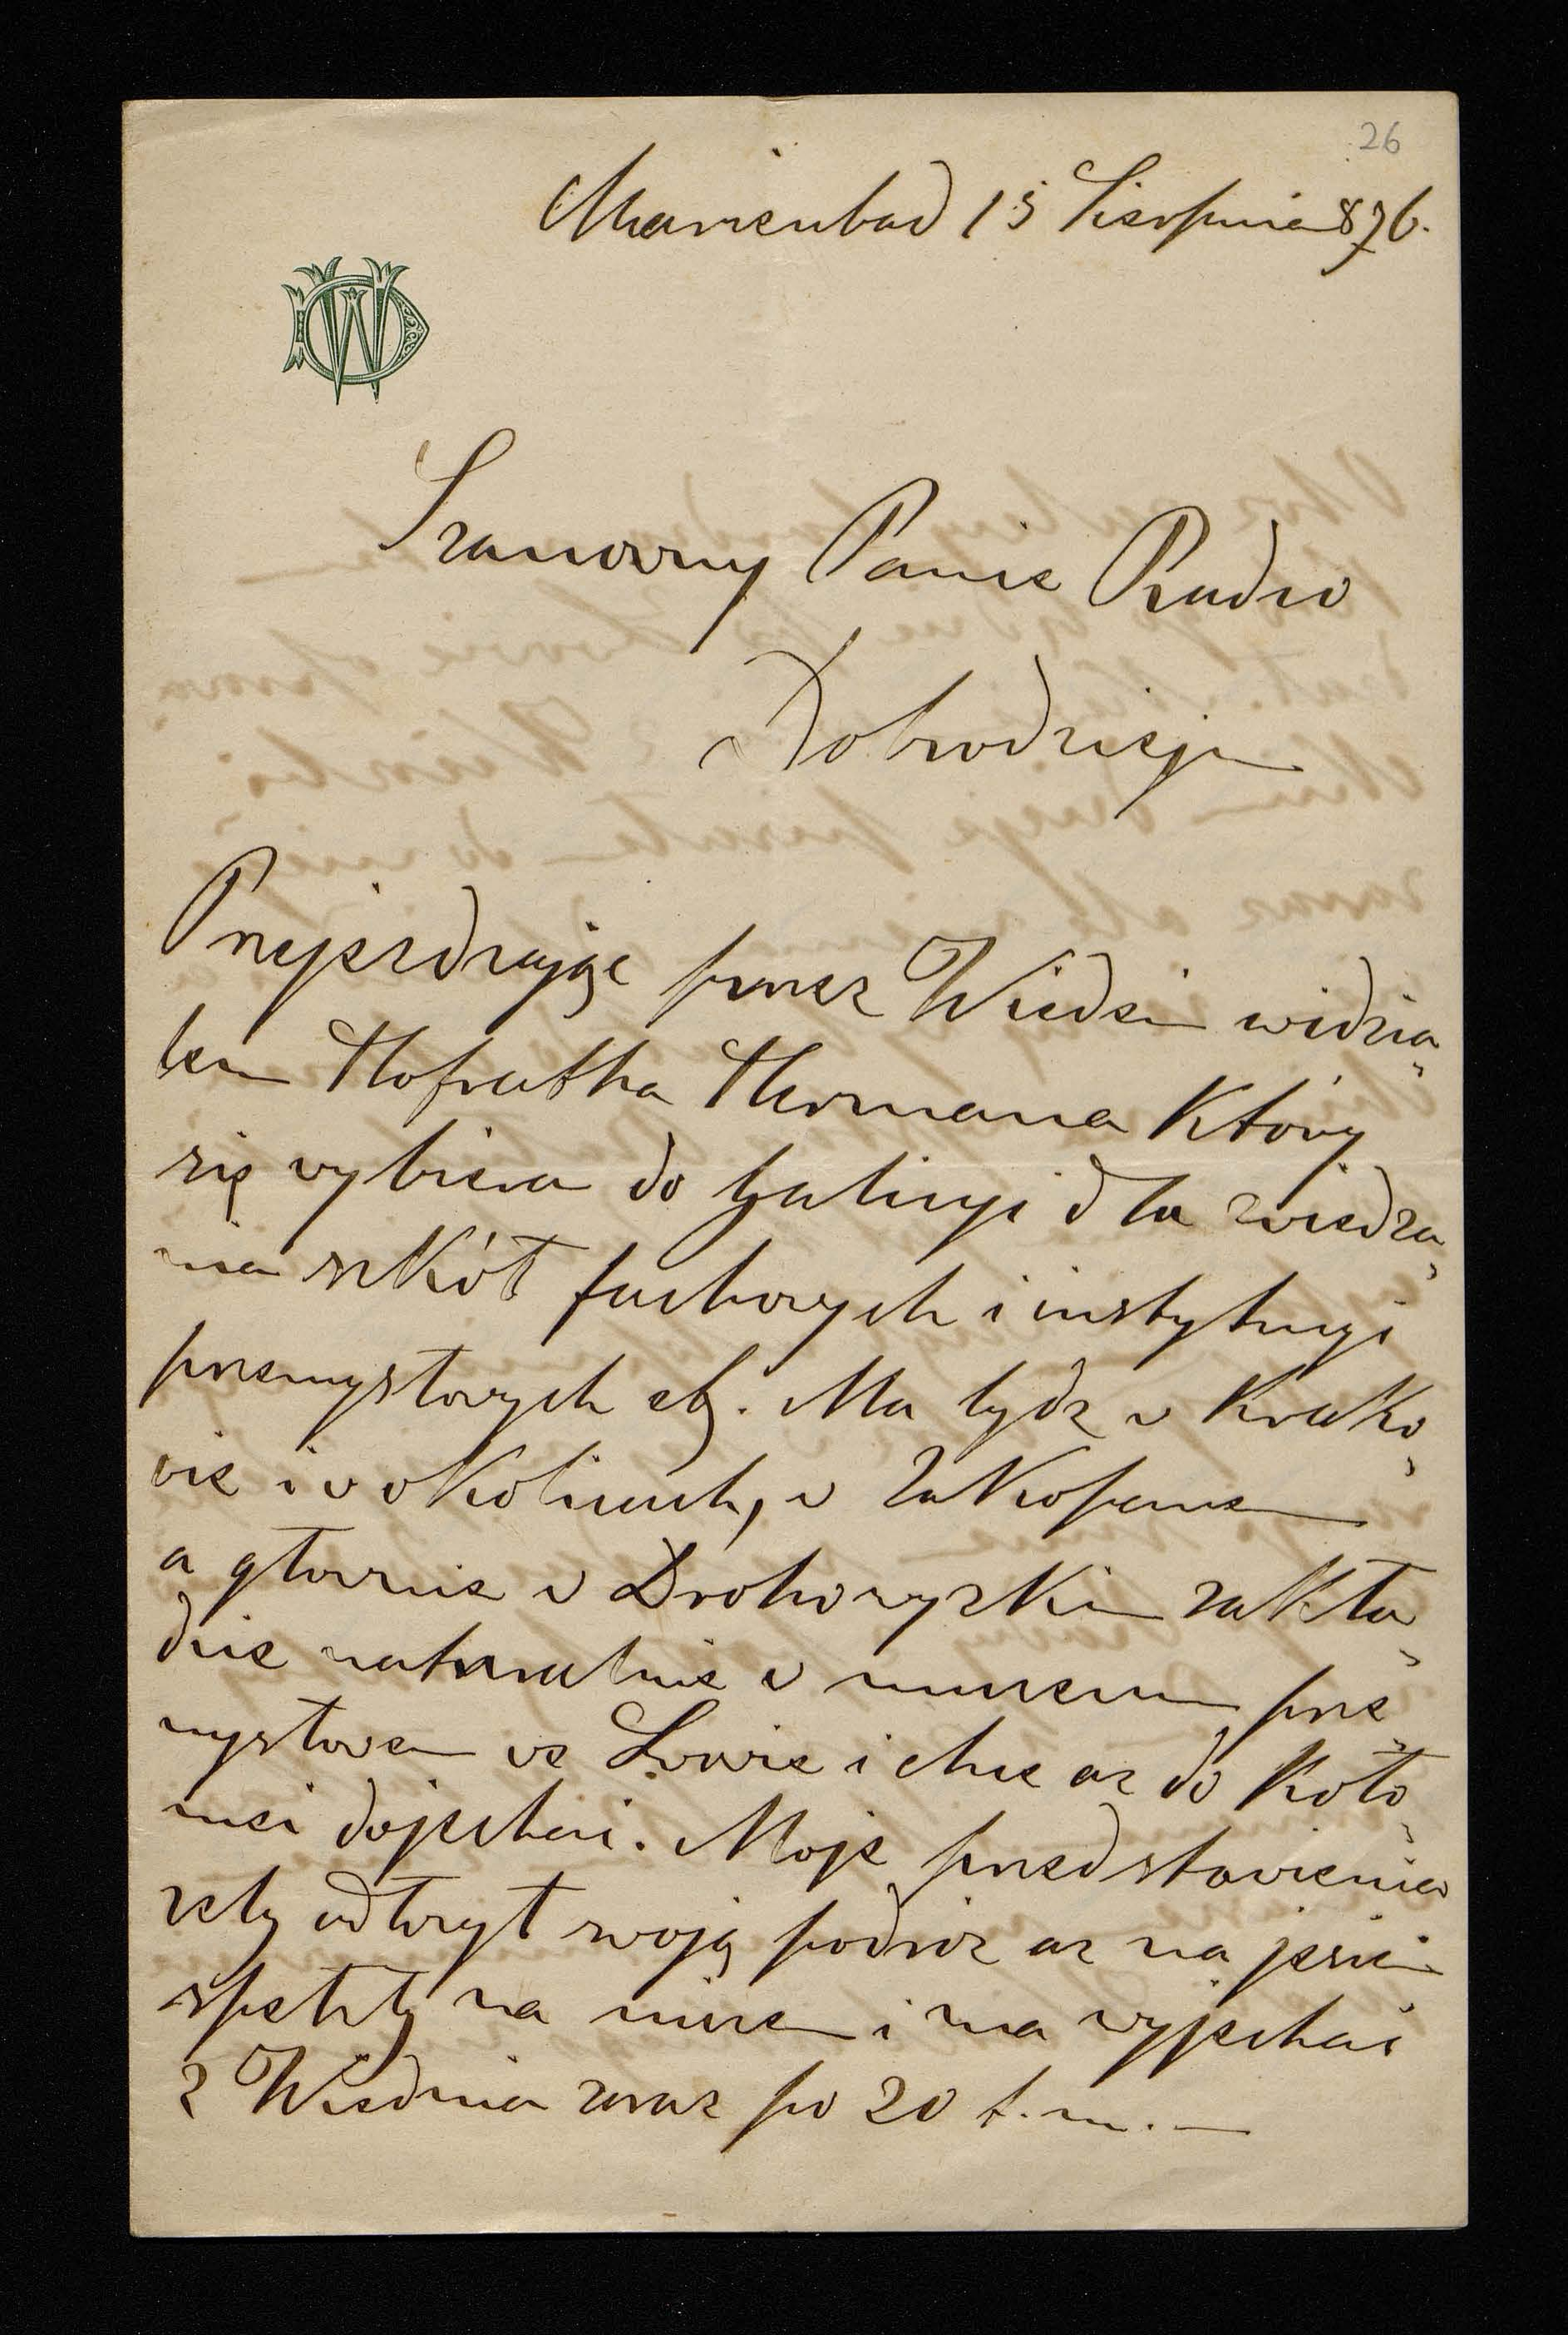 26
Marienbad 15 Sierpnia 876.
WD
Szanowny Panie Radco
Dobrodzieju
Przejeżdżając przez Wiedeń widzia„
łem Hofratha Hermana który
się wybiera do Galicyi dla zwiedza„
nia szkół fachowych i instytucyi
przemysłowych etc. Ma bydź w Krako„
wie i w okolicach, w Zakopanem
a głównie w Drohowyzkim zakła„
dzie naturalnie w muzeum prze„
mysłowem we Lwowie i chce az do Koło„
mei dojechać. Moje przedstawienia
zeby odłozył swoją podróz az na jesień
spełzły na niczem i ma wyjechać
z Wiednia zaraz po 20 t. m. —